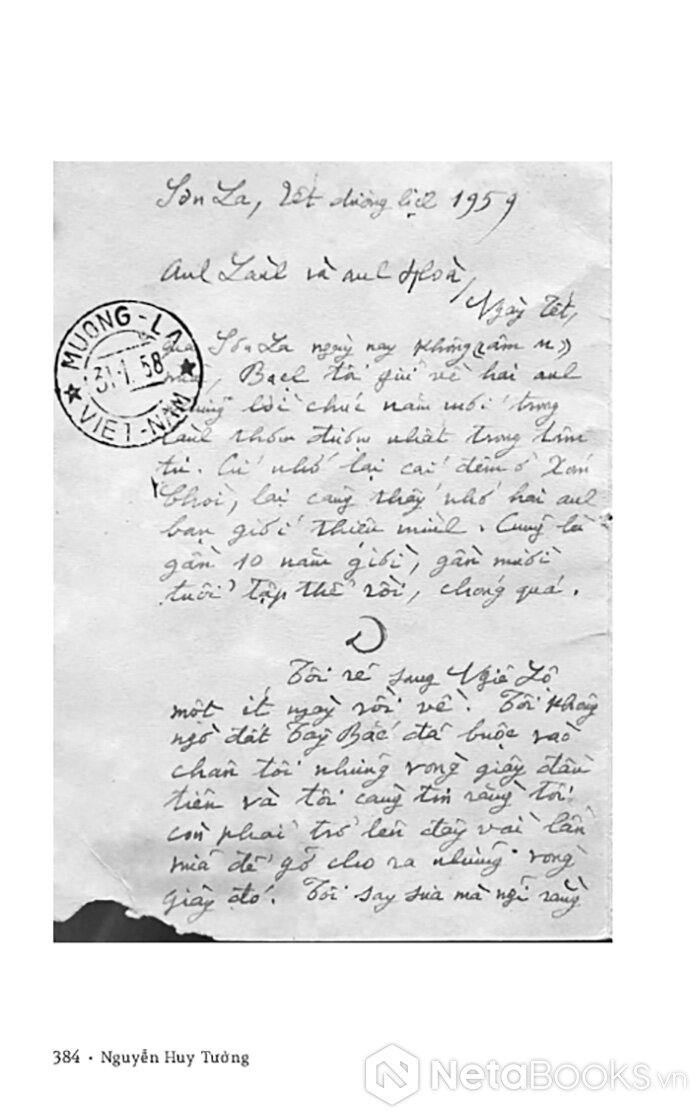 Sơn La, Tết dương lịch 1959
Anh Lành và anh Hoà,
Ngày Tết,
Sơn La ngày nay không "âm u"
Bạch tôi gửi về hai anh
lời chúc năm mới trong
lành thơm đượm nhất trong tâm
tư. Cứ nhớ lại cái đêm ở Xóm
Chòi, lại càng thấy nhớ hai anh
bạn giới thiệu mình. Cũng là
gần 10 năm giời, gần mười
tuổi tập thể rồi, chóng quá.
Tôi rẽ sang Nghĩa Lộ
một ít ngày rồi về. Tôi không
ngờ đất Tây Bắc đã buộc vào
chân tôi những vòng giây đầu
tiên và tôi càng tin rằng tôi
còn phải trở lên đây vài lần
nữa để gỡ cho ra những vòng
giây đó. Tôi say sưa mà nghĩ rằng
MUONG-LA
31.1.58
VIET-NAM
384 • Nguyễn Huy Tưởng
NetaBooks.vn